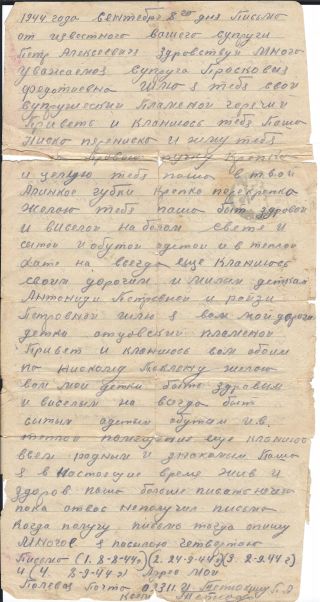 1944 года сентебре 8го дня Письмо
от известного вашего супруги
Петр Алексеевич здравствуй много
уважаемоя супруга Просковия
Федотиевна Шлю я тебе свой
супружеский Пламеной горечий
Привет и кланиюсь тебе Паша
Ниско перениско и жму тебе
Правою руку Крепко
и целую тебя паша в твои
губки крепко перекрепко
желаю тебе паша быть здоровой
и виселой на белом свете и
сытой и обутой одетой и в теплой
хате на всегда еще кланиюсь
своим дорогим и милым деткам
Антониди Петровной и
Петровной шлю я вам мои дорога
детки отцовский пламеной
Привет и кланиюсь вам обоим
по Нискому Поклону желаю
вам мои детки быть здоровым
и виселым на всегда быт
сытым одетым обутым и в
теплой еще кланиюсь
всем родным и знакомым Паша
я в настоящие время жив и
здоров паша больше писать нечего
пока отвас неполучил письмо
когда получу письмо тогда опишу
Много я посилаю четвертою
Письмо (1. 8-8-44г) (2. 24-8-44г) (3. 2-9-44 г)
и (4. 8-9-44 г) Адрес мой
Полевая Почта 03311 И